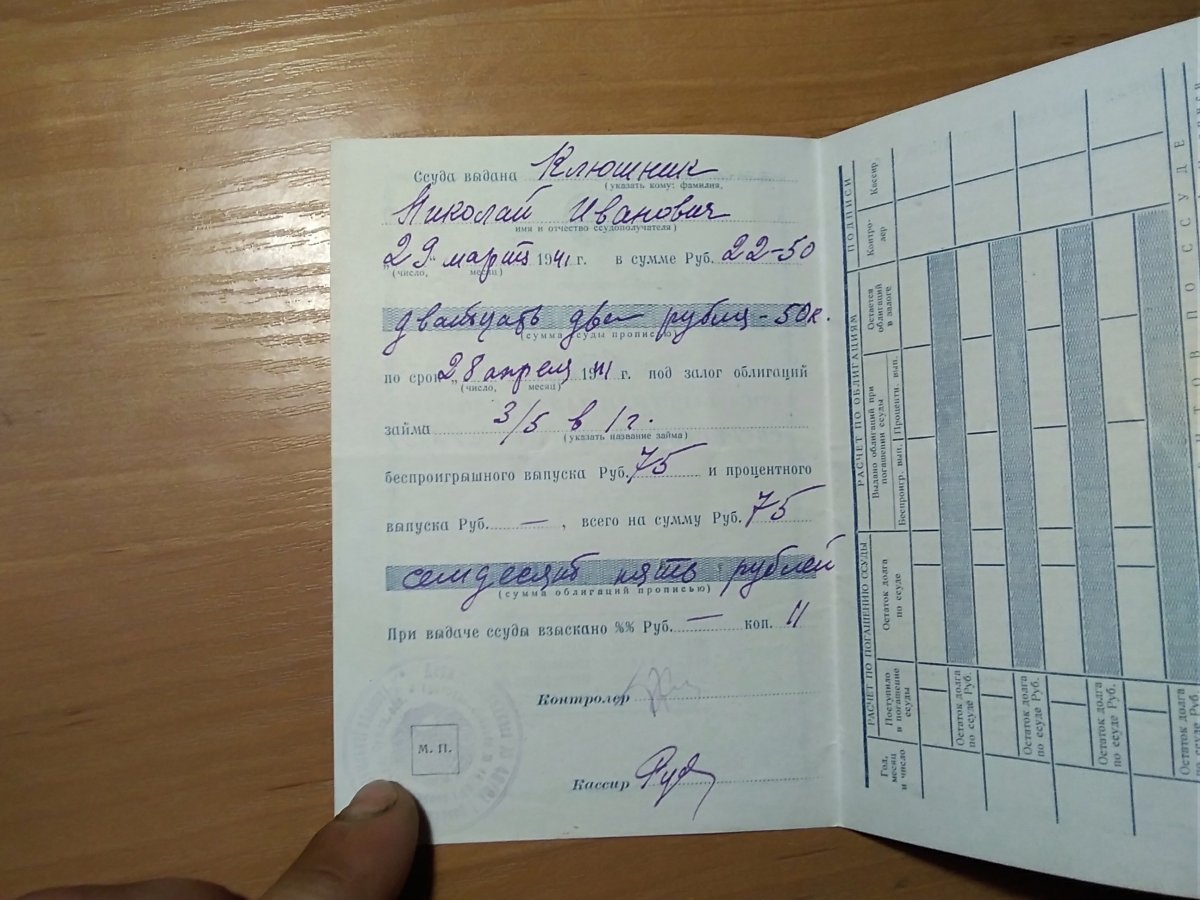 Ссуда выдана Клюшник
(указать кому: фамилия,
Николай Иванович
имя и отчество ссудополучателя)
"29" марта 1941 г. в сумме Руб. 22-50
(число, месяц)
двадцать две рубля - 50 к.
(сумма ссуды прописью)
по срок "28 апреля 1941 г. под залог облигаций
(число, месяц)
займа 3/5 в 1 г.
(указать название займа)
беспроигрышного выпуска Руб. 75 и процентного
выпуска Руб. — , всего на сумму Руб. 75
семдесят пять рублей
(сумма облигаций прописью)
При выдаче ссуды взыскано %% Руб. — коп. 11
Контролер
М. П.
Кассир
РАСЧЕТ ПО ПОГАШЕНИЮ ССУДЫ
РАСЧЕТ ПО ОБЛИГАЦИЯМ
ПОДПИСИ
Год, месяц и число
Поступило в погашение ссуды
Остаток долга по ссуде
Выдано облигаций при погашении ссуды
Беспроигр. вып.
Процентн. вып.
Остается облигаций в залоге
Контро-
лер
Кассир
Остаток долга
по ссуде Руб.
Остаток долга
по ссуде Руб.
Остаток долга
по ссуде Руб.
Остаток долга
ПО ССУДЕ